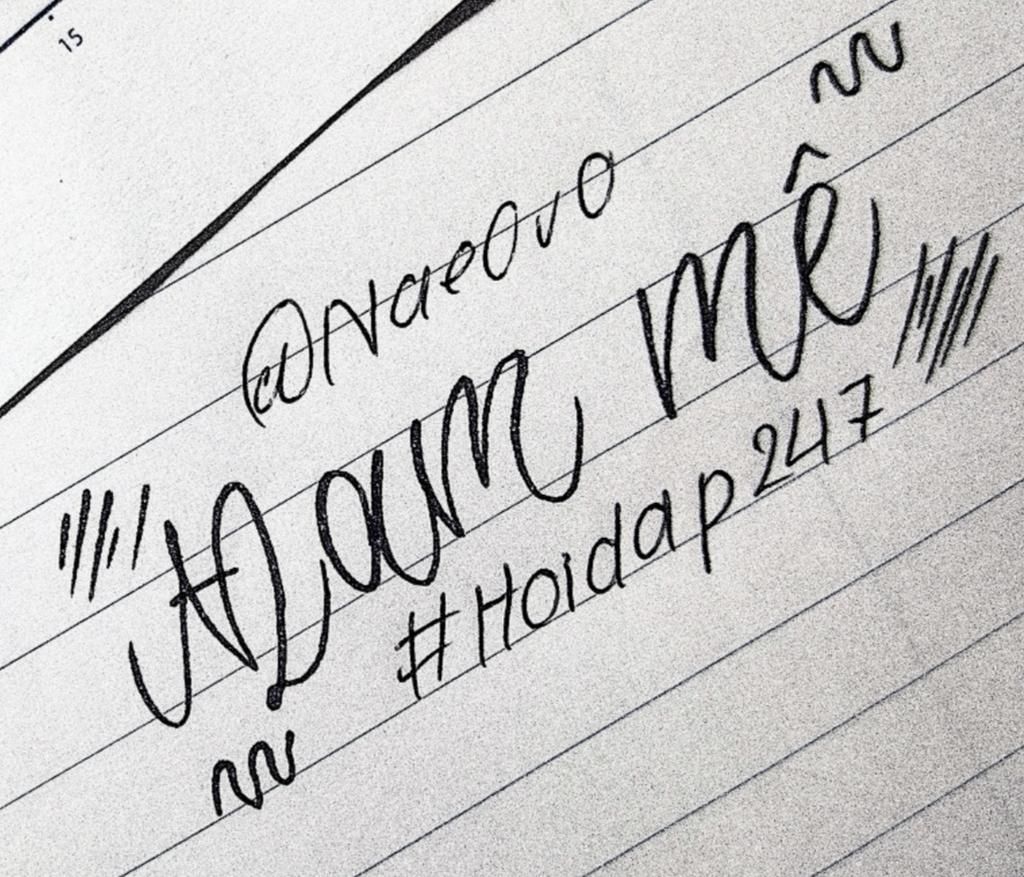 15
@Nae0v0
Đam mê
#Hoidap247